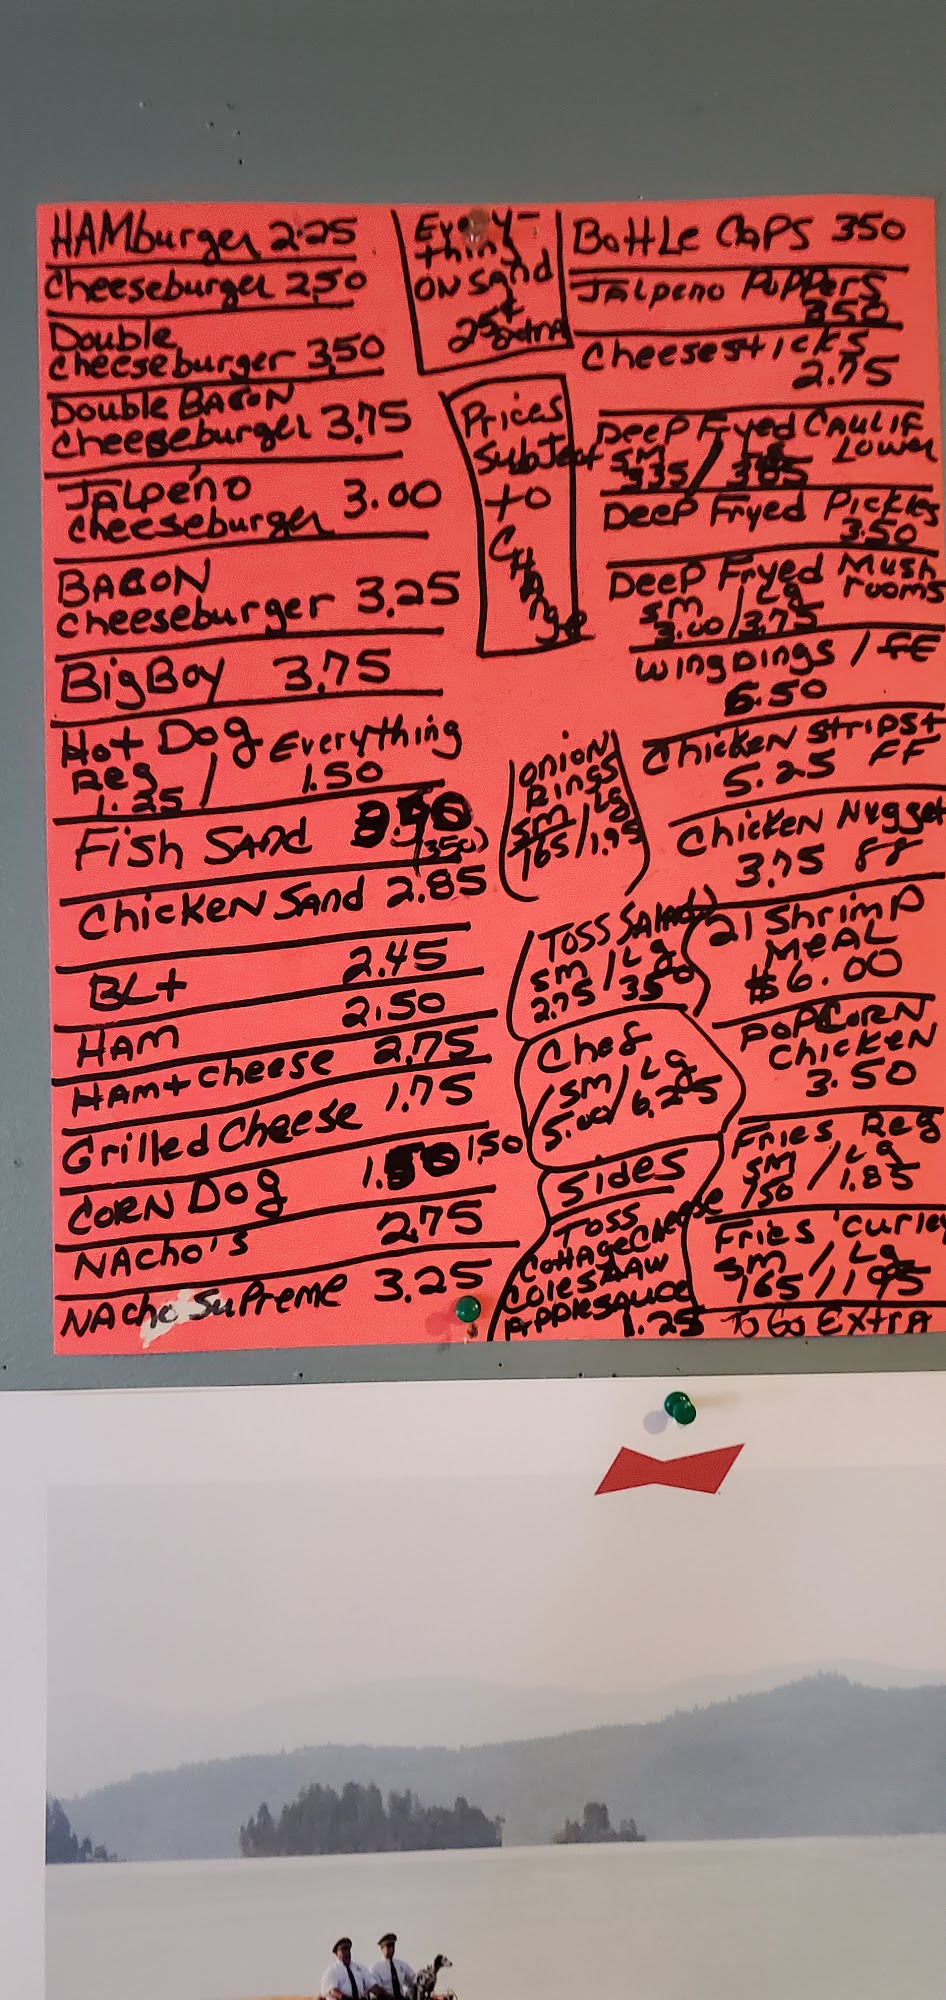 HAMburger 2.25
Cheeseburger 2.50
Double
Cheeseburger 3.50
Double BACON
Cheeseburger 3.75
JALpeńo 3.00
cheeseburger
BACON
Cheeseburger 3.25
BigBoy 3.75
Hot Dog Everything
Reg /
1.25 1.50
Fish SAND
(350)
Chicken Sand 2.85
BLt 2.45
HAM 2.50
HAM+cheese 2.75
Grilled Cheese 1.75
CORN Dog 1.50 1.50
NAcho's 2.75
NAcho SuPreme 3.25
Every-
thing
ON SAND
25¢ extra
Prices
Subject
to
CHANge
onion
Rings
sm / Lg
165 / 1.95
Toss Salad
sm / Lg
2.75 / 350
Chef
sm / Lg
5.00 / 6.25
Sides
Toss
CottageCheese
ColesLAW
Applesauce
1.25
BottLe CaPS 350
JALpeno PoPPers
350
Cheesesticks
2.75
DeeP Fryed CAULIF
Lower
sm / Lg
335 / 385
DeeP Fryed Pickles
3.50
DeeP Fryed Mush
rooms
sm / Lg
3.00 / 3.75
wing Dings / FF
6.50
Chicken strips+
5.25 FF
Chicken Nugget
3.75 FF
21 Shrimp
MeAL
$6.00
PoPCorn
Chicken
3.50
Fries Reg
sm / Lg
150 / 1.85
Fries Curley
sm / Lg
165 / 195
To Go ExtrA